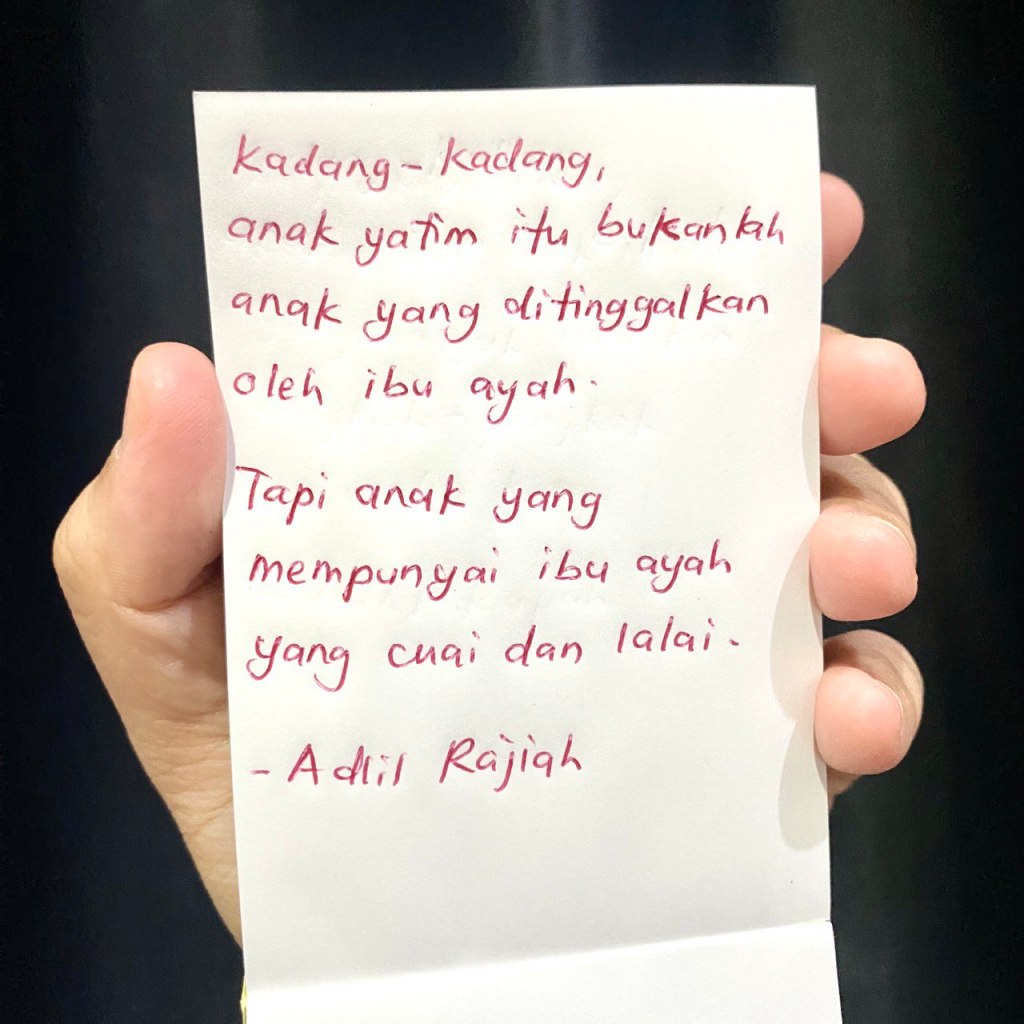 Kadang-Kadang,
anak yatim itu bukanlah
anak yang ditinggalkan
oleh ibu ayah.
Tapi anak yang
mempunyai ibu ayah
yang cuai dan lalai.
- Adlil Rajiah